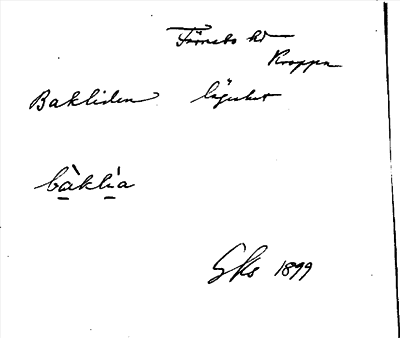 Färnebo hd
Kroppa
Bakliden lägenhet
bàklìa
Gks 1899